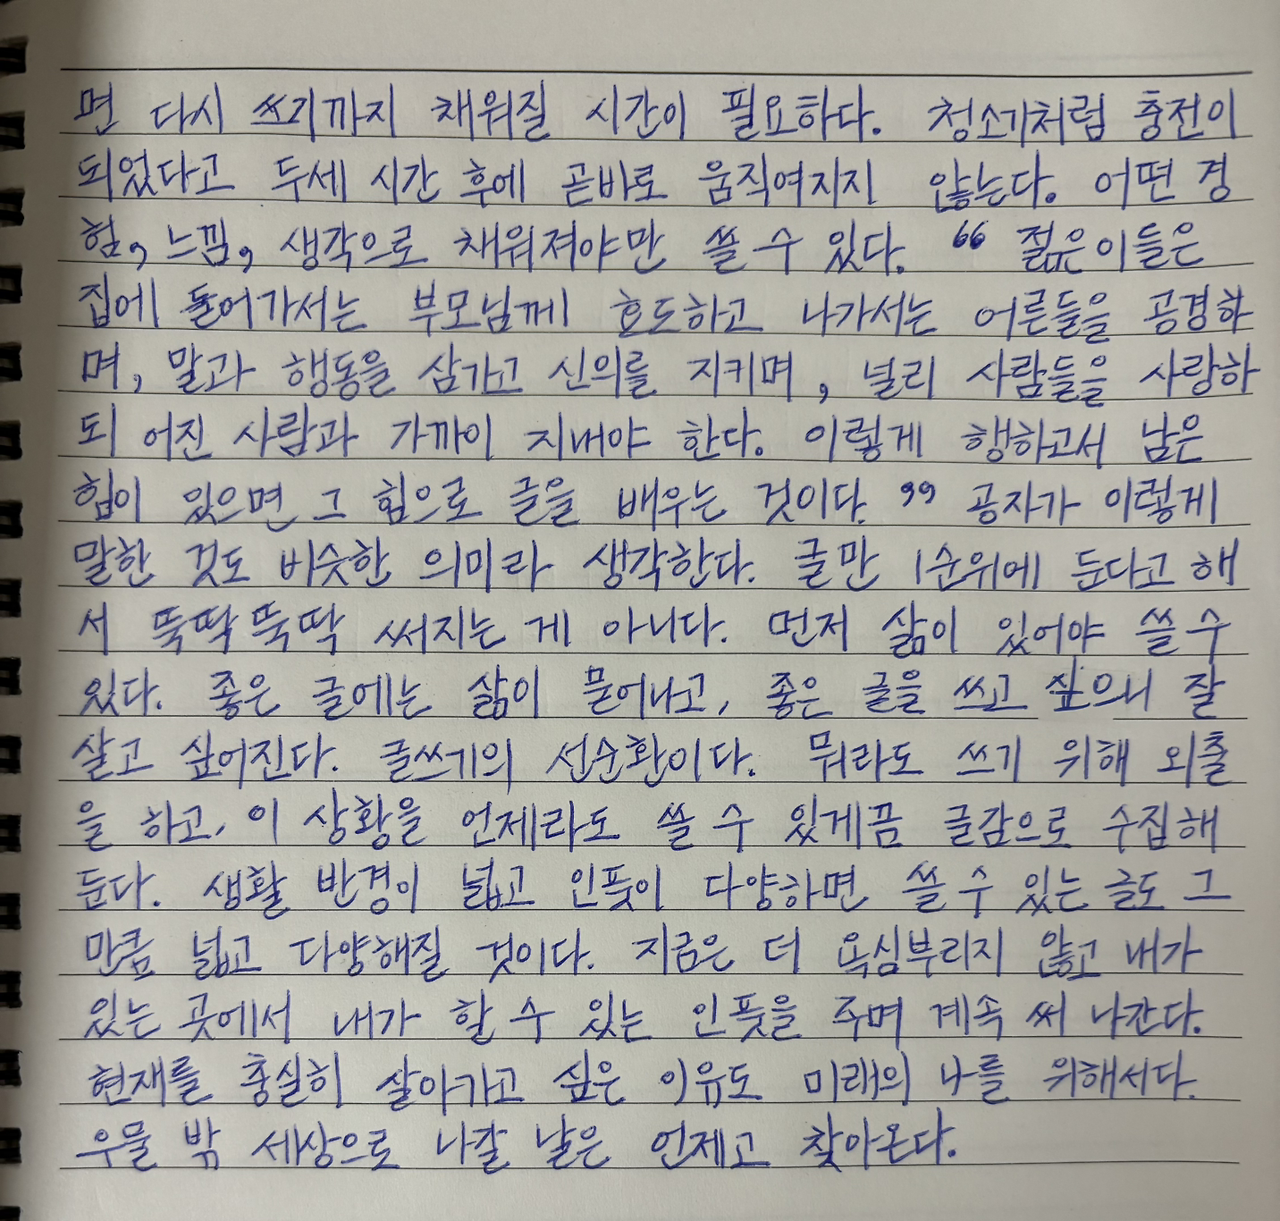 면 다시 쓰기까지 채워질 시간이 필요하다. 청소기처럼 충전이
되었다고 두세 시간 후에 곧바로 움직여지지 않는다. 어떤 경
험, 느낌, 생각으로 채워져야만 쓸 수 있다. “ 젊은이들은
집에 들어가서는 부모님께 효도하고 나가서는 어른들을 공경하
며, 말과 행동을 삼가고 신의를 지키며, 널리 사람들을 사랑하
되 어진 사람과 가까이 지내야 한다. 이렇게 행하고서 남은
힘이 있으면 그 힘으로 글을 배우는 것이다. ” 공자가 이렇게
말한 것도 비슷한 의미라 생각한다. 글만 1순위에 둔다고 해
서 뚝딱뚝딱 써지는 게 아니다. 먼저 삶이 있어야 쓸 수
있다. 좋은 글에는 삶이 묻어나고, 좋은 글을 쓰고 싶으니 잘
살고 싶어진다. 글쓰기의 선순환이다. 뭐라도 쓰기 위해 외출
을 하고, 이 상황을 언제라도 쓸 수 있게끔 글감으로 수집해
둔다. 생활 반경이 넓고 인풋이 다양하면 쓸 수 있는 글도 그
만큼 넓고 다양해질 것이다. 지금은 더 욕심부리지 않고 내가
있는 곳에서 내가 할 수 있는 인풋을 주며 계속 써 나간다.
현재를 충실히 살아가고 싶은 이유도 미래의 나를 위해서다.
우물 밖 세상으로 나갈 날은 언제고 찾아온다.